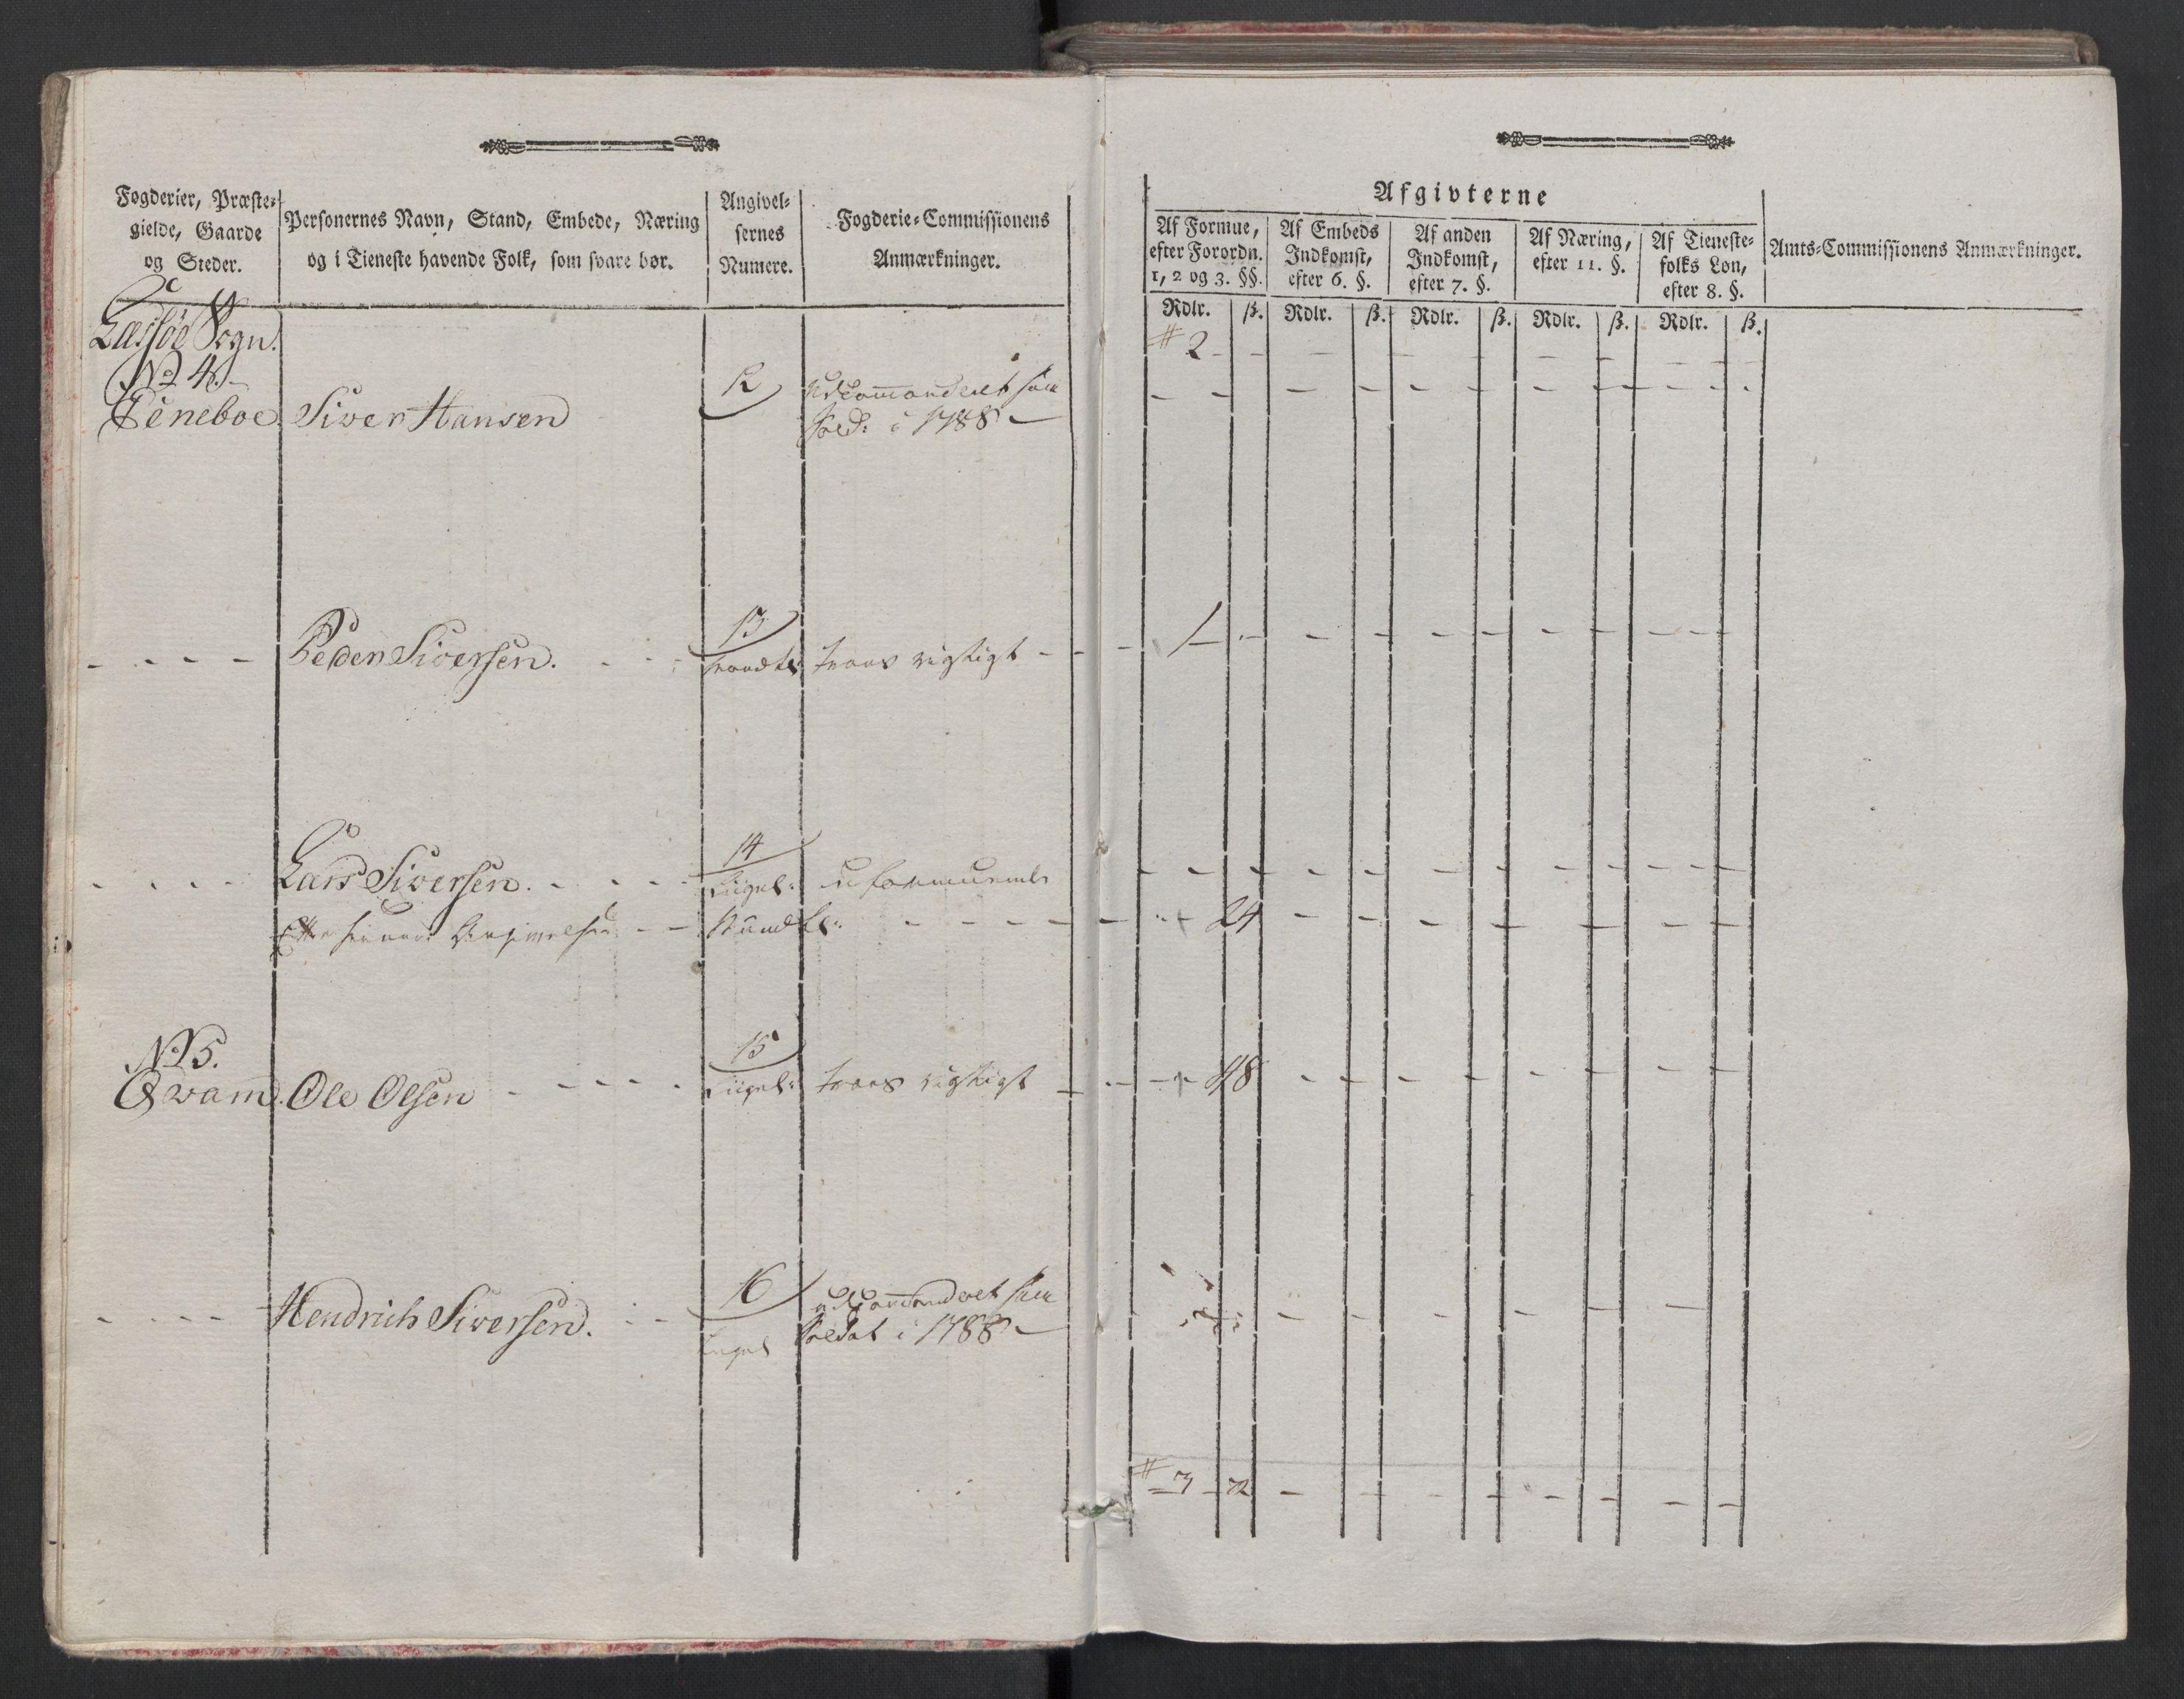 Fogderier, Præste-
gielde, Gaarde
og Steder.
Personernes Navn, Stand, Embede, Næring
og i Tieneste havende Folk, som svare bør.
Angivel-
sernes
Numere.
Fogderie-Commissionens
Anmærkninger.
Afgivterne
Af Formue,
efter Forordn.
1, 2 og 3. §§.
Af Embeds
Indkomst,
efter 6. §.
Af anden
Indkomst,
efter 7. §.
Af Næring,
efter 11. §.
Af Tieneste-
folks Løn,
efter 8. §.
Amts-Commissionens Anmærkninger.
Rdlr. ß. Rdlr. ß. Rdlr. ß. Rdlr. ß. Rdlr. ß.
Sogn.
2 - - - - - - - - -
No 4.
12
udcommanderet som
Siver Hansen
Sold: i 1788 -
13
Peder Siversen. - - - svares rigtigt - - - 1 - - - - - - - - -
14
Lars Siversen. - - - uformuende
- - 24 - - - - - - - -
No 5.
15
Qvam. Ole Olsen - - - - svares rigtigt - - - 48 - - - - - - - -
16
udcommanderet som
Hendrich Siversen. - -
Soldat i 1788 -
3 - 72 - - - - - - - -